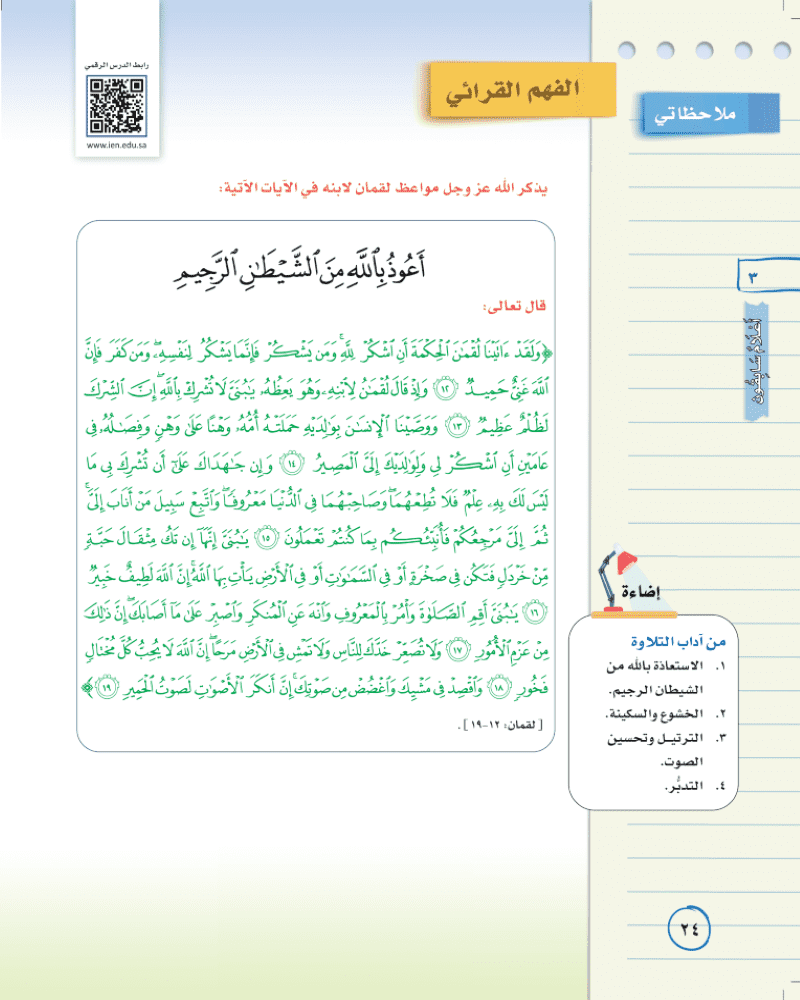 رابط الدرس الرقمي
www.ien.edu.sa
الفهم القرائي
ملاحظاتي
يذكر الله عز وجل مواعظ لقمان لابنه في الآيات الآتية:
أَعُوذُ بِٱللَّهِ مِنَ ٱلشَّيْطَٰنِ ٱلرَّجِيمِ
قال تعالى:
﴿وَلَقَدْ ءَاتَيْنَا لُقْمَٰنَ ٱلْحِكْمَةَ أَنِ ٱشْكُرْ لِلَّهِۚ وَمَن يَشْكُرْ فَإِنَّمَا يَشْكُرُ لِنَفْسِهِۦۖ وَمَن كَفَرَ فَإِنَّ
ٱللَّهَ غَنِىٌّ حَمِيدٌ ١٢ وَإِذْ قَالَ لُقْمَٰنُ لِٱبْنِهِۦ وَهُوَ يَعِظُهُۥ يَٰبُنَىَّ لَا تُشْرِكْ بِٱللَّهِۖ إِنَّ ٱلشِّرْكَ
لَظُلْمٌ عَظِيمٌ ١٣ وَوَصَّيْنَا ٱلْإِنسَٰنَ بِوَٰلِدَيْهِ حَمَلَتْهُ أُمُّهُۥ وَهْنًا عَلَىٰ وَهْنٍ وَفِصَٰلُهُۥ فِى
عَامَيْنِ أَنِ ٱشْكُرْ لِى وَلِوَٰلِدَيْكَ إِلَىَّ ٱلْمَصِيرُ ١٤ وَإِن جَٰهَدَاكَ عَلَىٰٓ أَن تُشْرِكَ بِى مَا
لَيْسَ لَكَ بِهِۦ عِلْمٌ فَلَا تُطِعْهُمَاۖ وَصَاحِبْهُمَا فِى ٱلدُّنْيَا مَعْرُوفًاۖ وَٱتَّبِعْ سَبِيلَ مَنْ أَنَابَ إِلَىَّۚ
ثُمَّ إِلَىَّ مَرْجِعُكُمْ فَأُنَبِّئُكُم بِمَا كُنتُمْ تَعْمَلُونَ ١٥ يَٰبُنَىَّ إِنَّهَآ إِن تَكُ مِثْقَالَ حَبَّةٍ
مِّنْ خَرْدَلٍ فَتَكُن فِى صَخْرَةٍ أَوْ فِى ٱلسَّمَٰوَٰتِ أَوْ فِى ٱلْأَرْضِ يَأْتِ بِهَا ٱللَّهُۚ إِنَّ ٱللَّهَ لَطِيفٌ خَبِيرٌ
١٦ يَٰبُنَىَّ أَقِمِ ٱلصَّلَوٰةَ وَأْمُرْ بِٱلْمَعْرُوفِ وَٱنْهَ عَنِ ٱلْمُنكَرِ وَٱصْبِرْ عَلَىٰ مَآ أَصَابَكَۖ إِنَّ ذَٰلِكَ
مِنْ عَزْمِ ٱلْأُمُورِ ١٧ وَلَا تُصَعِّرْ خَدَّكَ لِلنَّاسِ وَلَا تَمْشِ فِى ٱلْأَرْضِ مَرَحًاۖ إِنَّ ٱللَّهَ لَا يُحِبُّ كُلَّ مُخْتَالٍ
فَخُورٍ ١٨ وَٱقْصِدْ فِى مَشْيِكَ وَٱغْضُضْ مِن صَوْتِكَۚ إِنَّ أَنكَرَ ٱلْأَصْوَٰتِ لَصَوْتُ ٱلْحَمِيرِ ١٩﴾
[ لقمان: ١٢-١٩ ].
٣
أعلام سابقون
إضاءة
من آداب التلاوة
١. الاستعاذة بالله من
الشيطان الرجيم.
٢. الخشوع والسكينة.
٣. الترتيل وتحسين
الصوت.
٤. التدبُّر.
٢٤